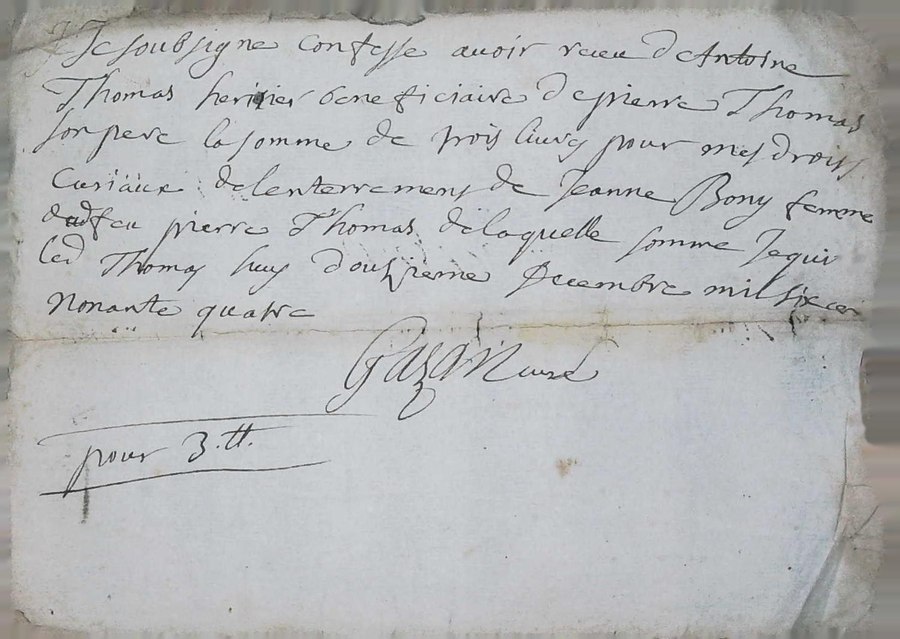 Je soubsigne confesse avoir receu de Antoine
Thomas heritier beneficiaire de pierre Thomas
son pere la somme de trois livres pour mes droits
curiaux de lenterrement de Jeanne Bony femme
dud feu pierre Thomas de laquelle somme Je quit
led Thomas huy douzieme Decembre mil six cen
nonante quatre
Gazan curé
pour 3.tt.